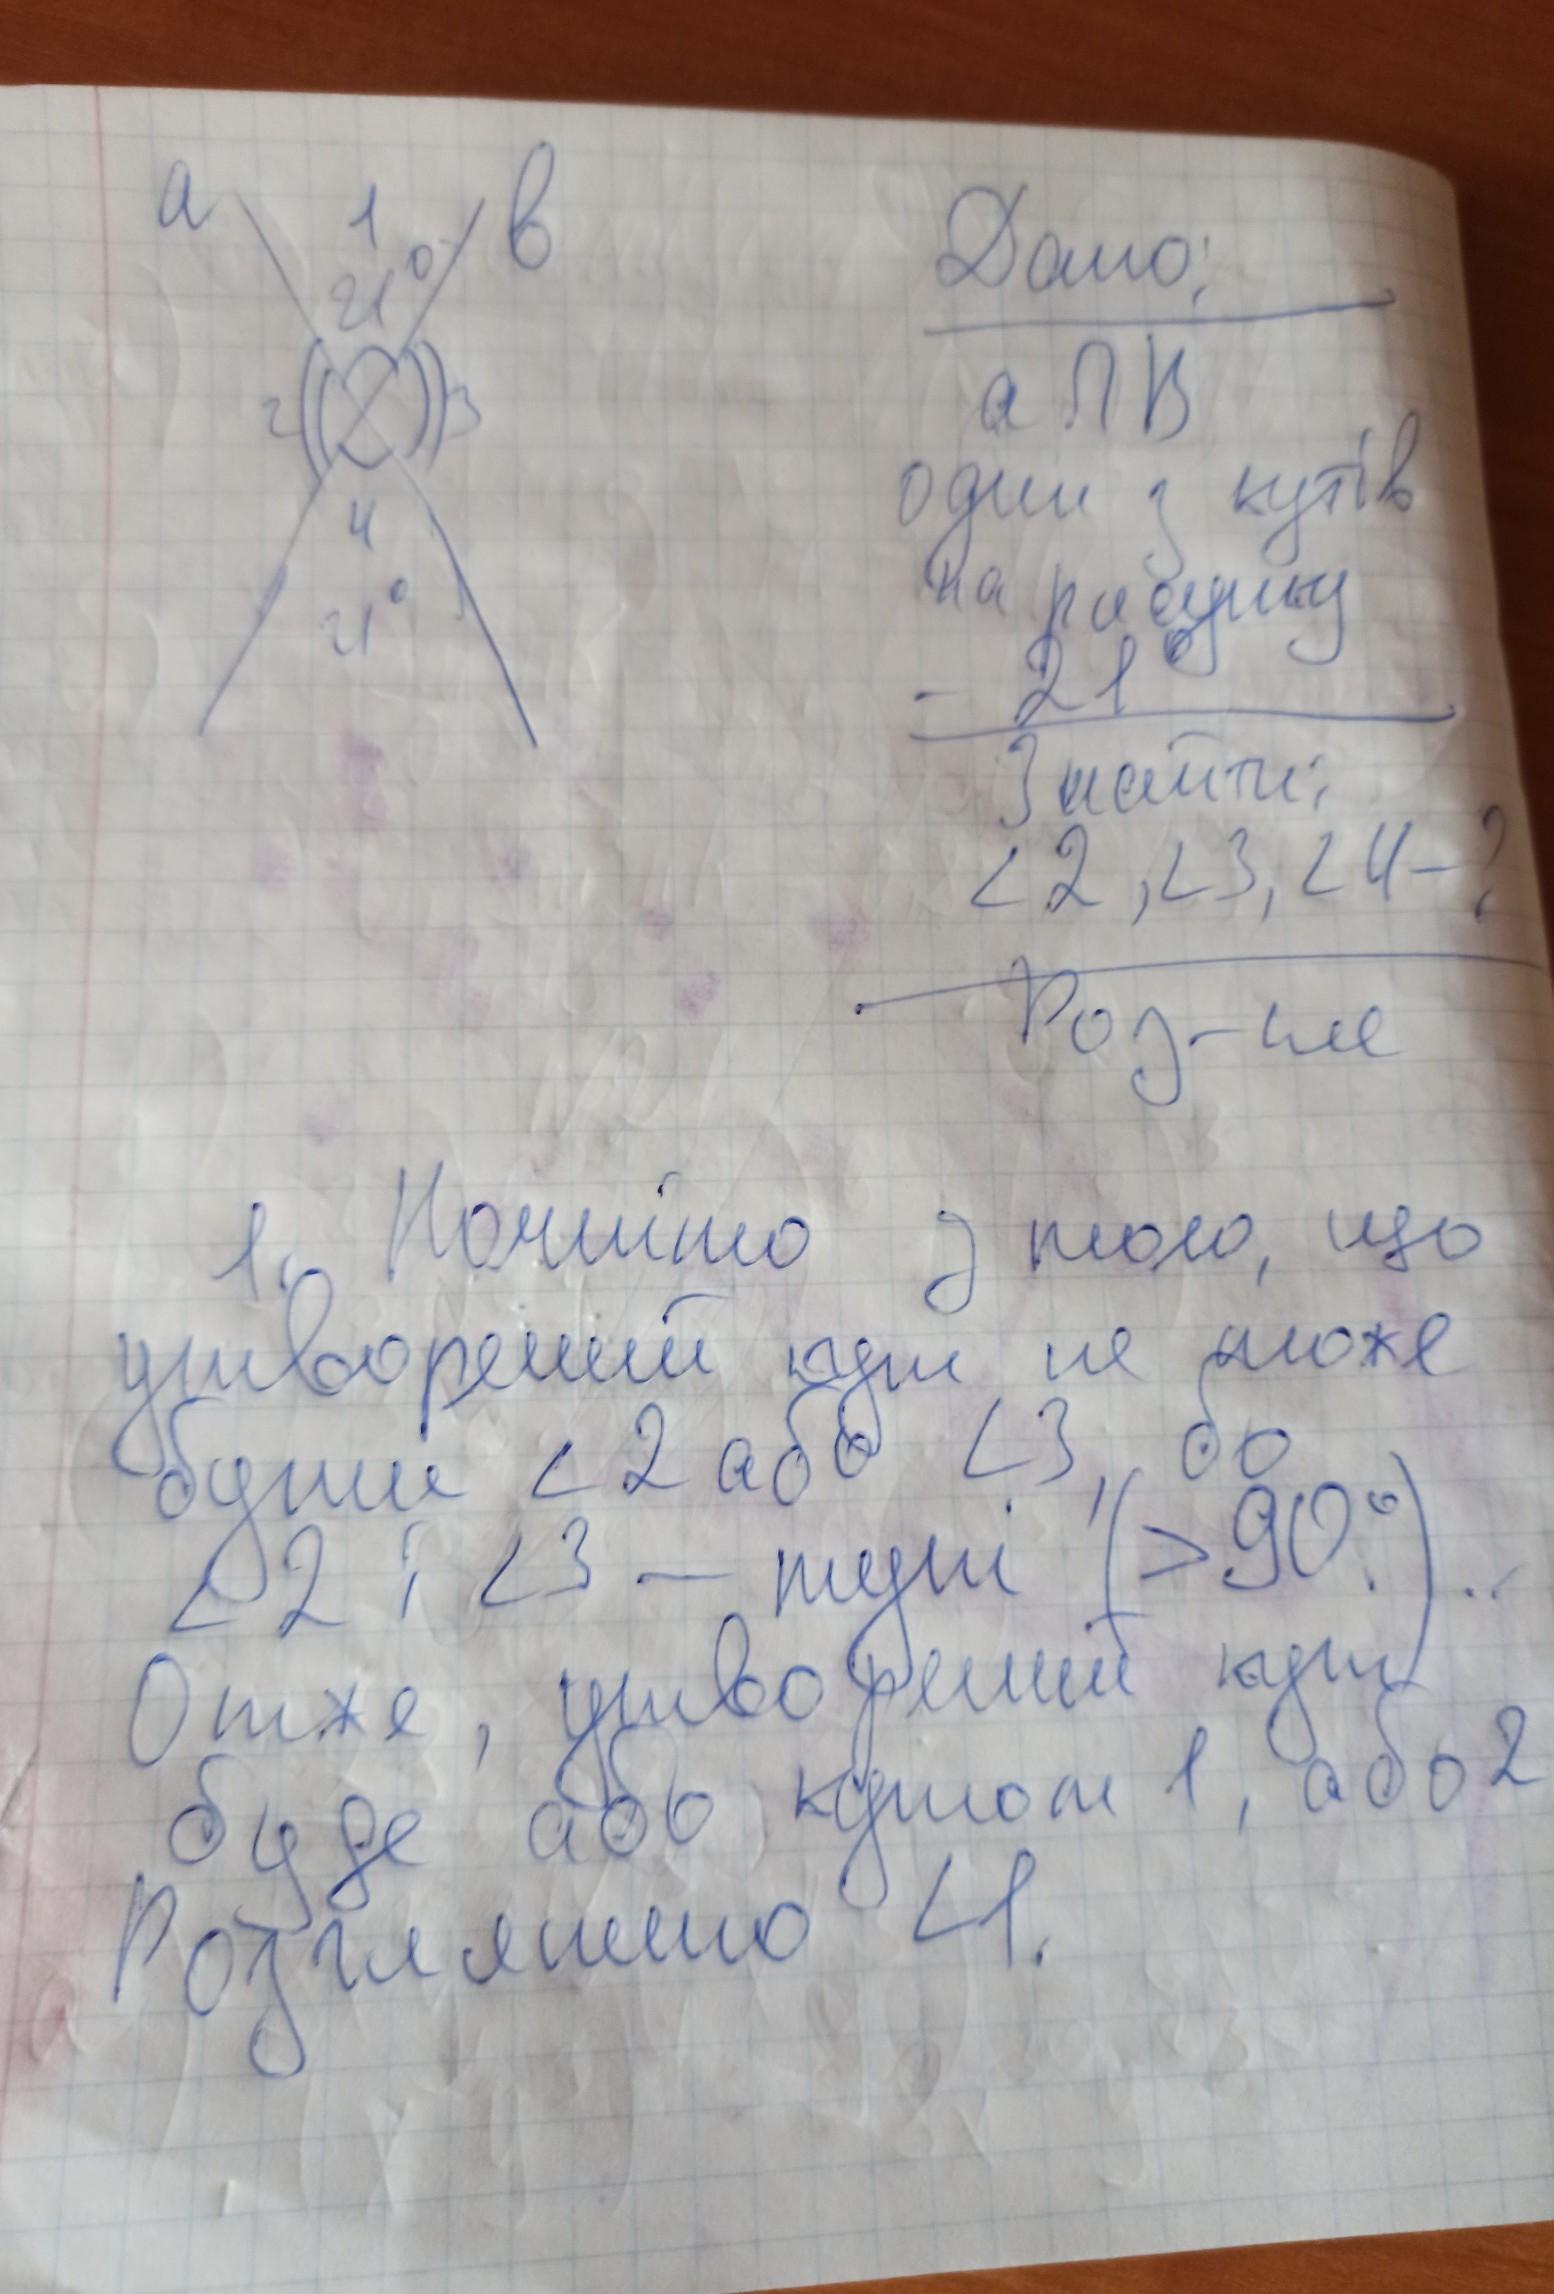 а 1 в
21°
2 3
4
21°
Дано:
а ∩ В
один з кутів
на рисунку
- 21°
Знайти:
∠2, ∠3, ∠4-?
Роз-ня
1. Почнімо з того, що
утворений кут не може
бути ∠2 або ∠3, бо
∠2 і ∠3 — тупі (>90°)..
Отже, утворений кут
буде або кутом 1, або 2
Розглянемо ∠1.